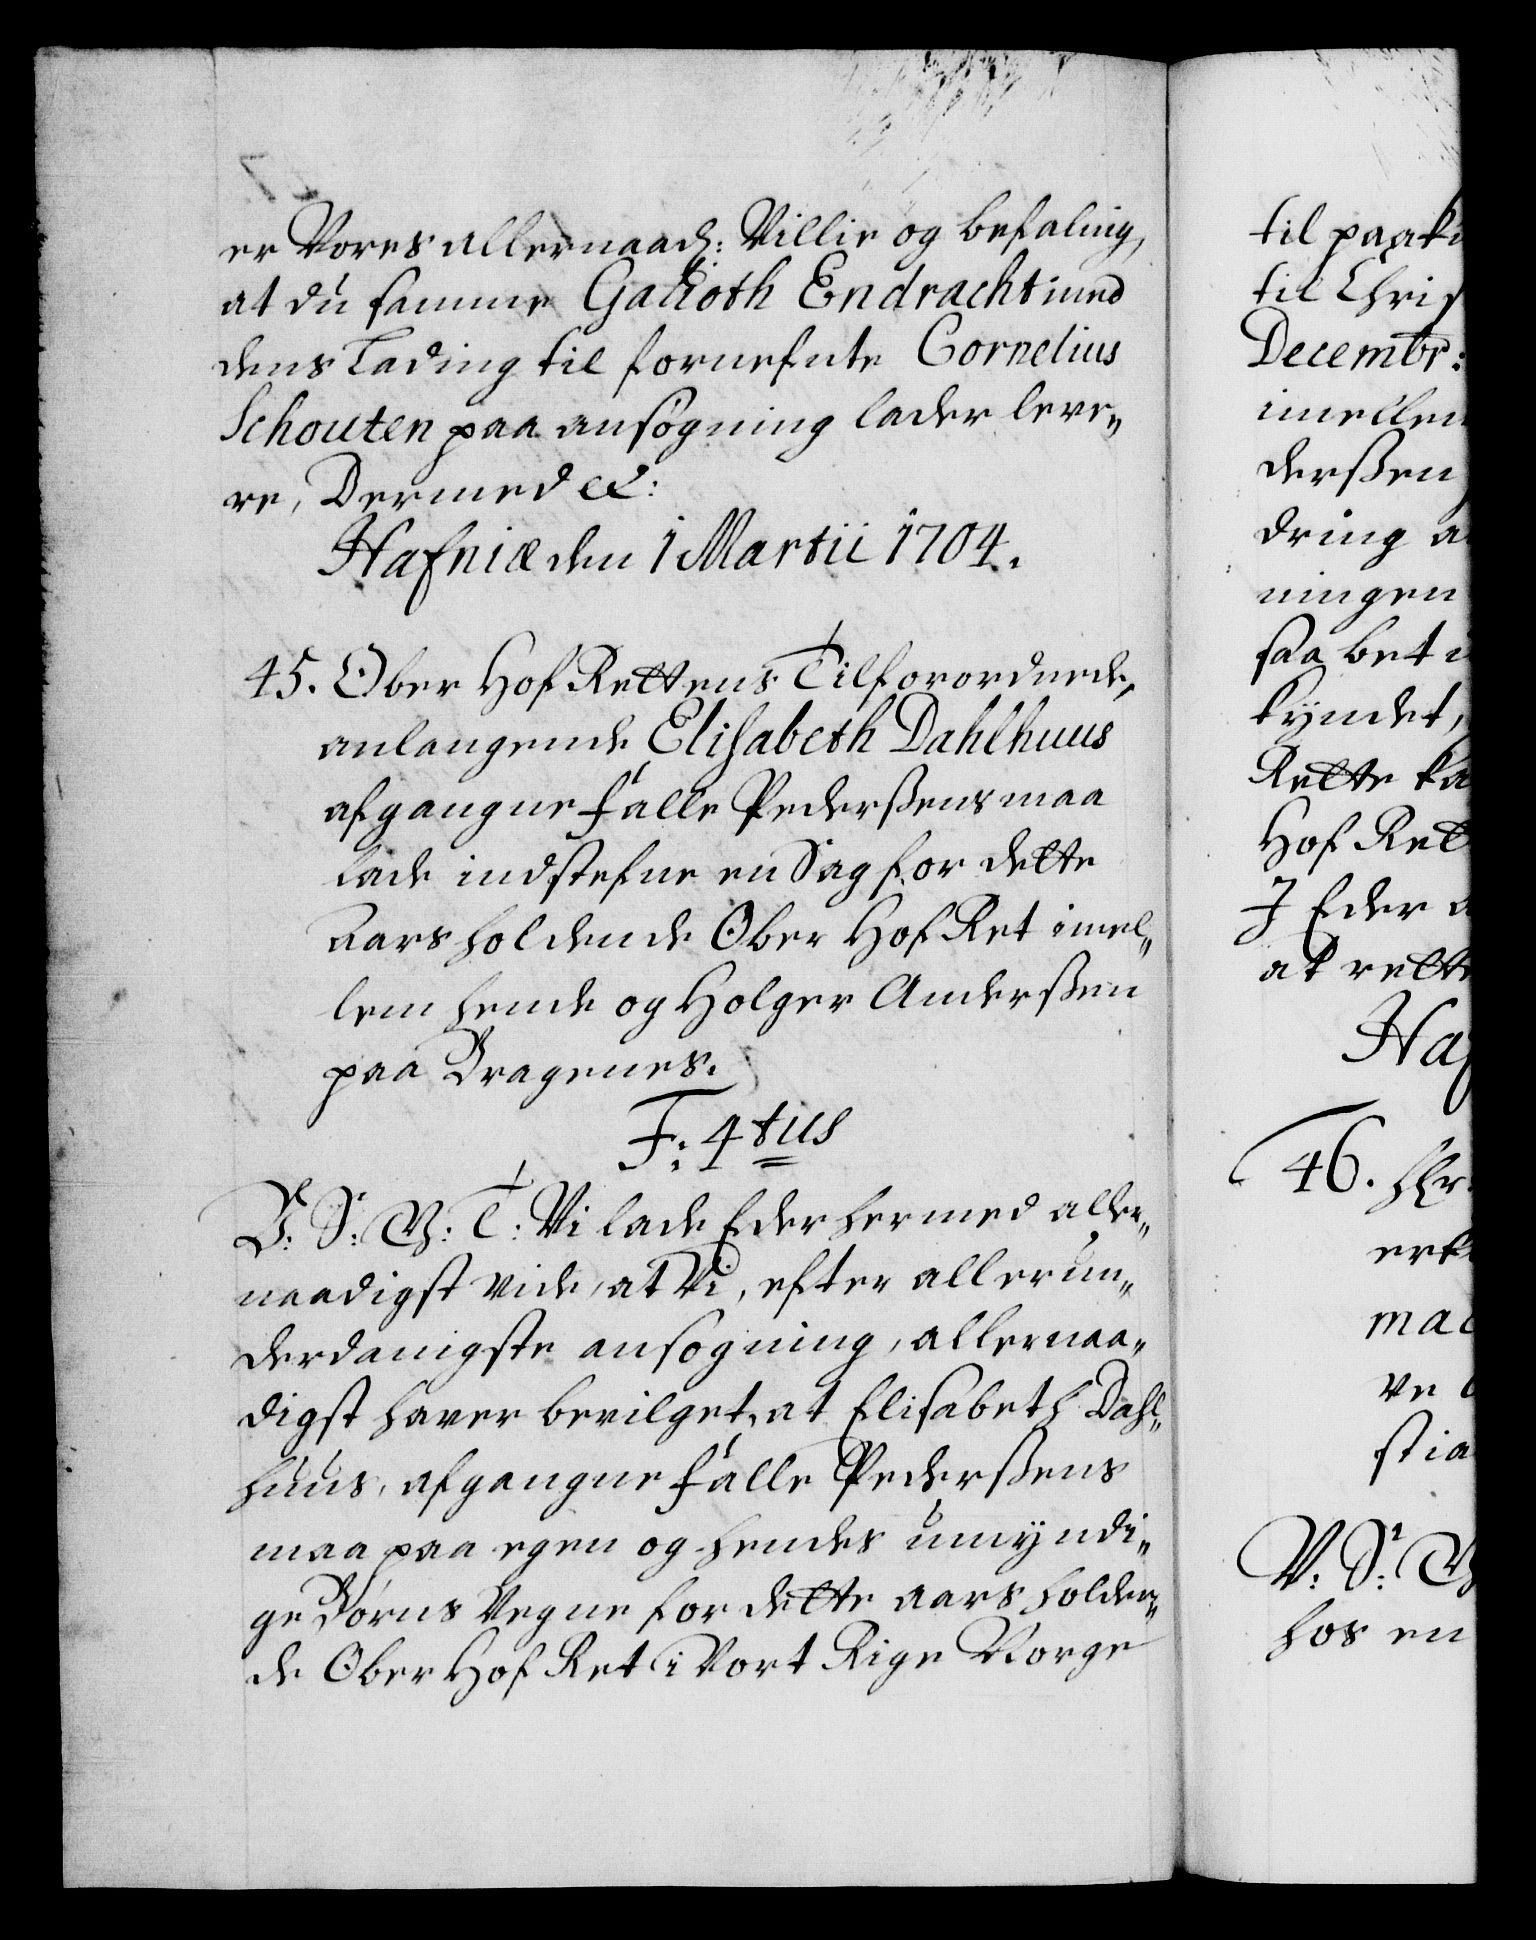 er Vores allernaad: Villie og befaling,
at du samme Galioth Endracht med
dens Lading til fornefnte Cornelius
Schouten paa ansøgning lader leve„
re, Dermed etc:
Hafniæ den 1 Martii 1704.
45. Ober Hof Rettens Tilforordnede,
anlangende Elisabeth Dahlhuus
afgangne Palle Pederßens maa
lade indstefne en Sag for dette
Aars holdende Ober Hof Ret imel„
lem hende og Holger Anderßen
paa Bragenes.
F: 4tus
V: S: G: T: Vi lade Eder hermed aller„
naadigst vide, at Vi, efter allerun„
derdanigste ansøgning, allernaa„
digst haver bevilget, at Elisabeth Dahl„
huus, afgangne Palle Pederßens
maa paa egen og hendes umyndi„
ge Børns Vegne for dette aars holden„
de Ober Hof Ret i Vort Rige Norge
til paak
til Chris
Decembr:
imellem
derßen
dring a
ningen
saa bet
kyndet,
Rette ka
Hof Ret
J Eder a
at rette
Haf
46. Chr
erk
mac
ve
stia
V: S: G
hos en